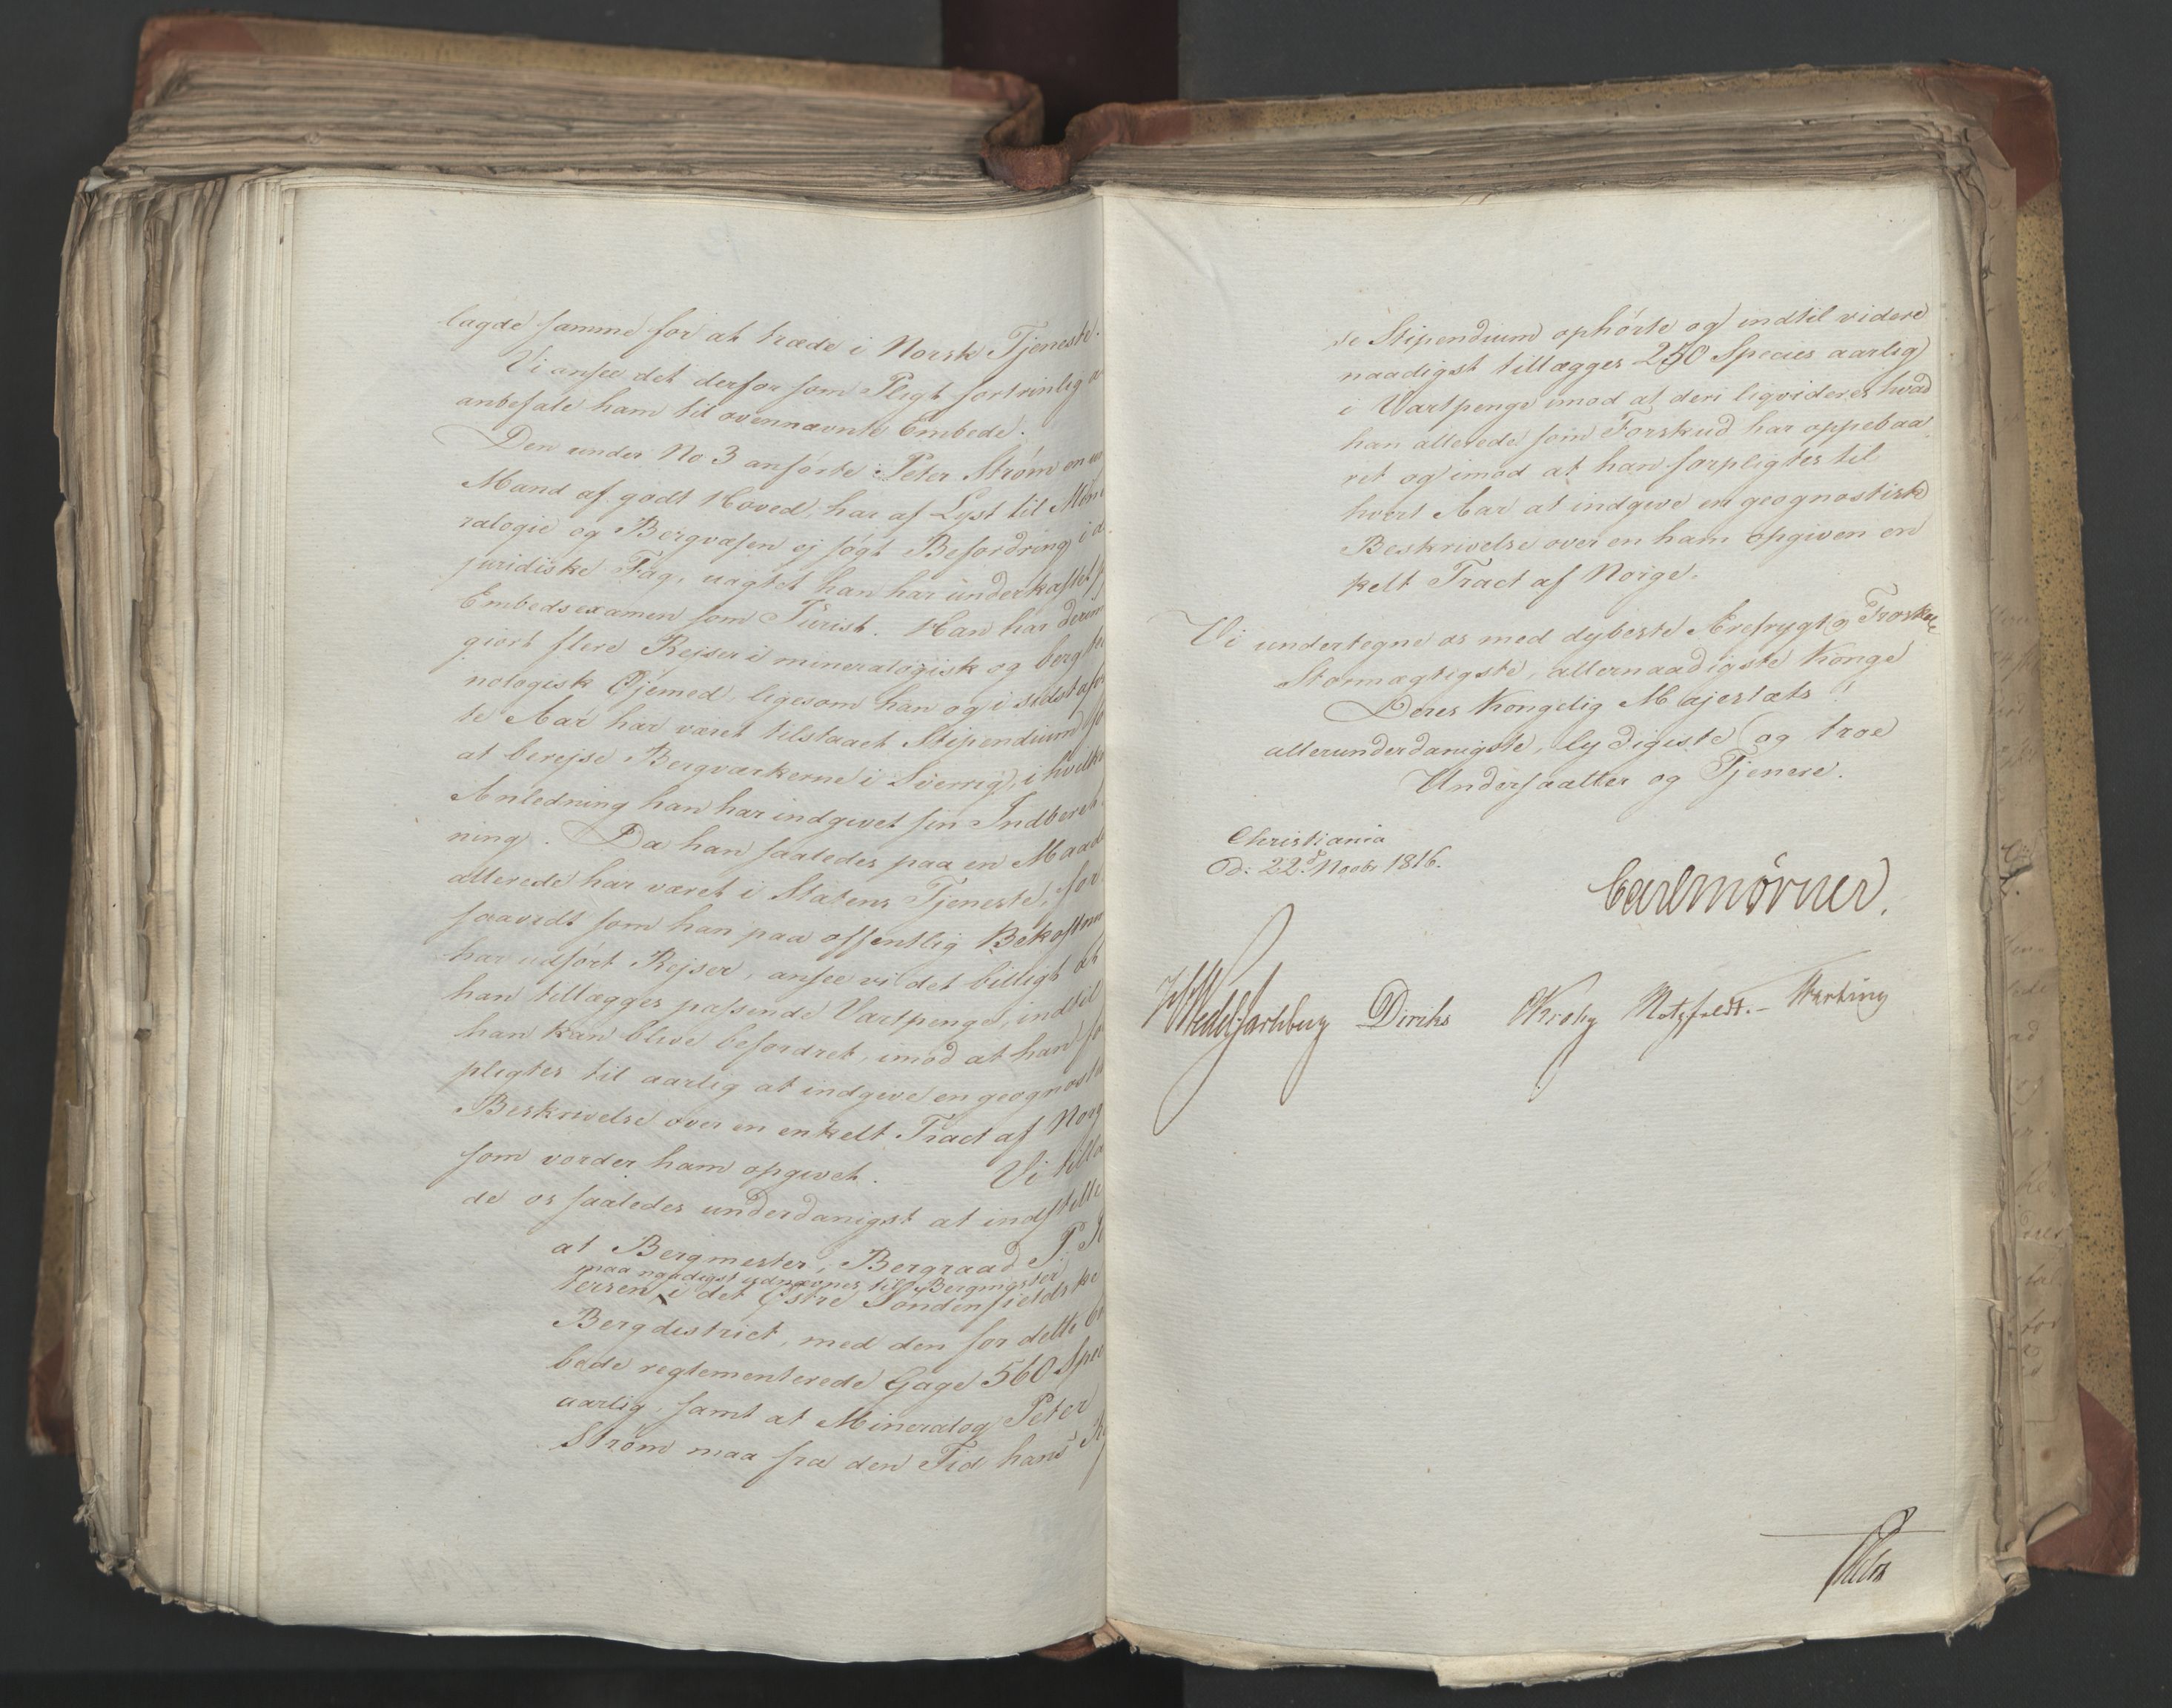 lagde samme for at træde i Norsk Tjeneste.
Vi ansee det derfor som Pligt fortrinlig a
anbefale ham til ovennævnte Embede.
Den under No 3 anførte Peter Strøm en
Mand af godt Hoved, har af Lyst til Mine
ralogie og Bergvæsen ej søgt Befordring i d
juridiske Fag, uagtet han har underkastet
Embedsexamen som Jurist. Han har derim
giort flere Rejser i mineralogisk og bergtek
nologisk Øjemed, ligesom han og i sidstafvig
te Aar har været tilstaaet Stipendium fo
at berejse Bergværkerne i Sverrig, i hvilke
Anledning han har indgivet sin Indberet
ning. Da han saaledes paa en Maade
allerede har været i Statens Tjeneste, for
saavidt som han paa offentlig Bekostn
har udført Rejser, ansee vi det billigt at
han tillægges passende Vartpenge, indtil
han kan blive befordret, imod at han for
pligtes til aarlig at indgive en geognosti
Beskrivelse over en enkelt Tract af Norg
som vorder ham opgivet. Vi tilla
de os saaledes underdanigst at indstille
at Bergmester, Bergraad P.
maa naadigst udnævnes til Bergmester
tersen i det Østre Søndenfieldske
Bergdistrict, med den for dette Em
bede reglementerede Gage 560 Spec
aarlig, samt at Mineralog Peter
Strøm maa fra den Tid hans
se Stipendium ophørte og indtil videre
naadigst tillægges 250 Species aarlig
i Vartpenge imod at deri liqvideres hvad
han allerede som Forskud har oppebaa
ret og imod at han forpligtes til
hvert Aar at indgive en geognostisk
Beskrivelse over en ham opgiven en
kelt Tract af Norge.
Vi undertegne os med dybeste Ærefrygt og Troskab
Stormægtigste, allernaadigste Konge
Deres Kongelig Majestæts!
allerunderdanigste, lydigste og troe
Undersaatter og Tjenere.
Christiania
D: 22d Novbr 1816.
Carl Mørner.
Wedel Jarlsberg Diriks Krohg Motzfeldt. Harbing